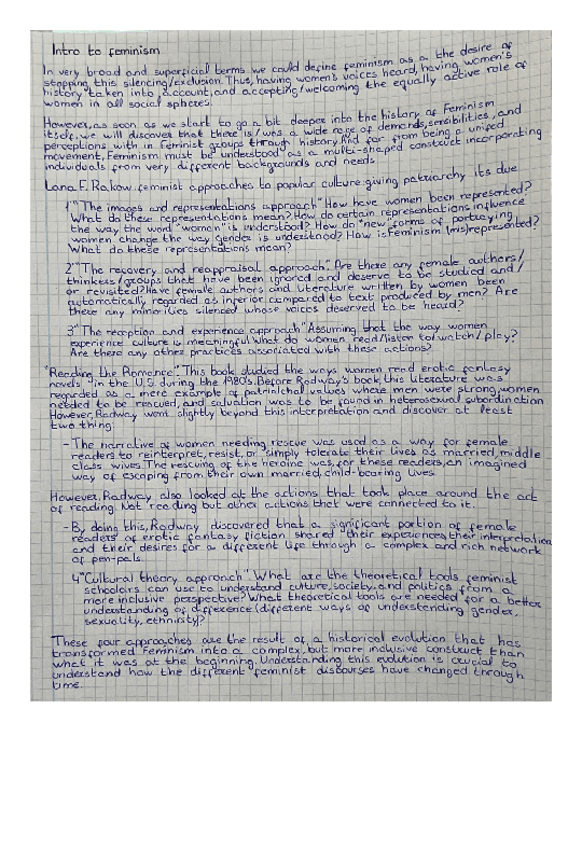 Intro to feminism
In very broad and superficial terms we could define feminism as a the desire of
stopping this silencing/exclusion. Thus, having women's voices heard, having women's
history taken into account, and accepting/welcoming the equally active role of
women in all social spheres.
However, as soon as we start to go a bit deeper into the history of Feminism
itself, we will discover that there is/was a wide rage of demands, sensibilities, and
perceptions with in Feminist groups through history. And far from being a unified
movement, Feminism must be understood as a multi-shaped construct incorporating
individuals from very different backgrounds and needs
Lana F. Rakow. feminist approaches to popular culture: giving patriarchy its due
1 "The images and representations approach" How have women been represented?
What do these representations mean? How do certain representations influence
the way the word "women" is understood? How do "new" forms of portraying
women change the way gender is understood? How is Feminism (mis)represented?
What do these representations mean?
2 "The recovery and reappraisal approach". Are there any female authors/
thinkers/groups that have been ignored and deserve to be studied and/
or revisited? Have female authors and literature written by women been
automatically regarded as inferior compared to text produced by men? Are
there any minorities silenced whose voices deserved to be heard?
3 "The reception and experience approach" Assuming that the way women
experience culture is meaningful what do women read/listen to/watch/play?
Are there any other practices associated with these actions?
"Reading the Romance". This book studied the ways women read erotic fantasy
novels in the U.S. during the 1980's. Before Radway's book, this literature was
regarded as a mere example of patriarchal values where men were strong, women
needed to be rescued, and salvation was to be found in heterosexual subordination
However, Radway went slightly beyond this interpretation and discover at least
two thing:
- The narrative of women needing rescue was used as a way for female
readers to reinterpret, resist, or simply tolerate their lives as married, middle
class wives. The rescuing of the heroine was, for these readers, an imagined
way of escaping from their own married, child-bearing lives.
However, Radway also looked at the actions that took place around the act
of reading. Not reading but other actions that were connected to it.
- By doing this, Radway discovered that a significant portion of female
readers of erotic fantasy fiction shared their experiences, their interpretation
and their desires for a different life through a complex and rich network
of pen-pals.
4 "Cultural theory approach". What are the theoretical tools feminist
schoolars can use to understand culture, society, and politics from a
more inclusive perspective? What theoretical tools are needed for a better
understanding of difference (different ways of understending gender,
sexuality, ethnicity)?
These four approaches are the result of a historical evolution that has
transformed Feminism into a complex, but more inclusive construct than
what it was at the beginning. Understanding this evolution is crucial to
understand how the different feminist discourses have changed through
time.